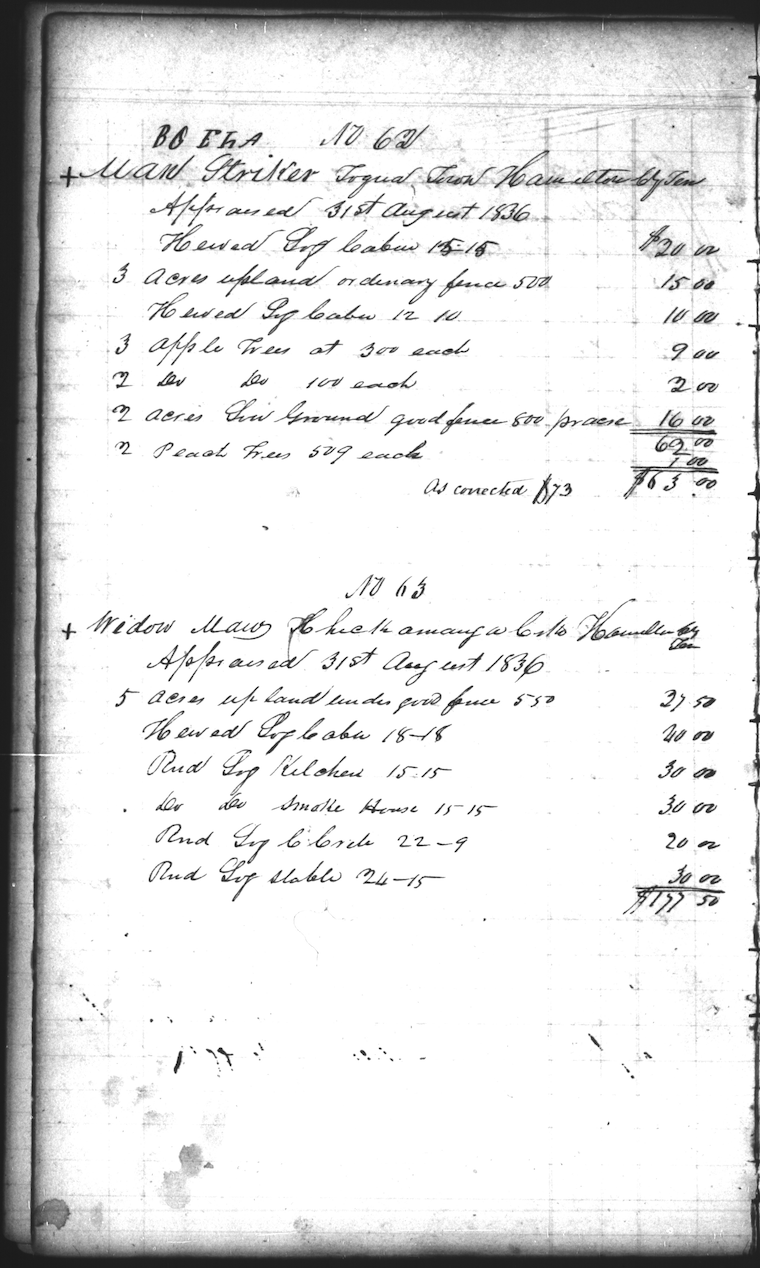 No 62
+ Man Striker Toqua Town Hamilton Cty Ten
Appraised 31st August 1836
Hewed Log Cabin 15-15 $20 00
3 Acres upland ordinary fence 500 15 00
Hewed Log Cabin 12 10 10 00
3 Apple Trees at 300 each 9 00
2 Do Do 100 each 2 00
2 Acres Low Ground good fence 800 pr acre 16 00
62 00
2 Peach Trees 50¢ each 1 00
As corrected $73 $63 00
No 63
+ Widow Maw Chickamauga Hamilton Cty Ten
Appraised 31st August 1836
5 Acres upland under good fence 550 27 50
Hewed Log Cabin 18-18 40 00
Rnd Log Kitchen 15-15 30 00
Do Do Smoke House 15-15 30 00
Rnd Log C Crib 22-9 20 00
Rnd Log Stable 24-15 30 00
$177 50